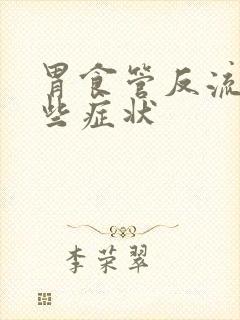 胃食管反流
些症状
李荣翠